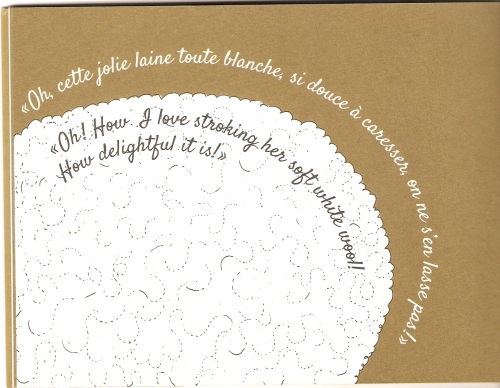 «Oh, cette jolie laine toute blanche, si douce à caresser, on ne s'en lasse pas!»
«Oh! How I love stroking her soft white wool!
How delightful it is!»